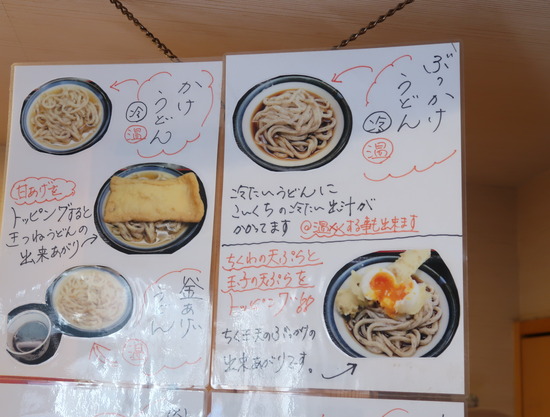 かけ
うどん
冷
温
甘あげを
トッピングすると
きつねうどんの
出来あがり
釜あげ
うどん
温
ぶっかけ
うどん
冷
温
冷たいうどんに
こいくちの冷たい出汁が
かかってます
@温かくする事も出来ます
ちくわの天ぷらと
玉子の天ぷらを
トッピング
ちく玉天のぶっかけの
出来あがりです。